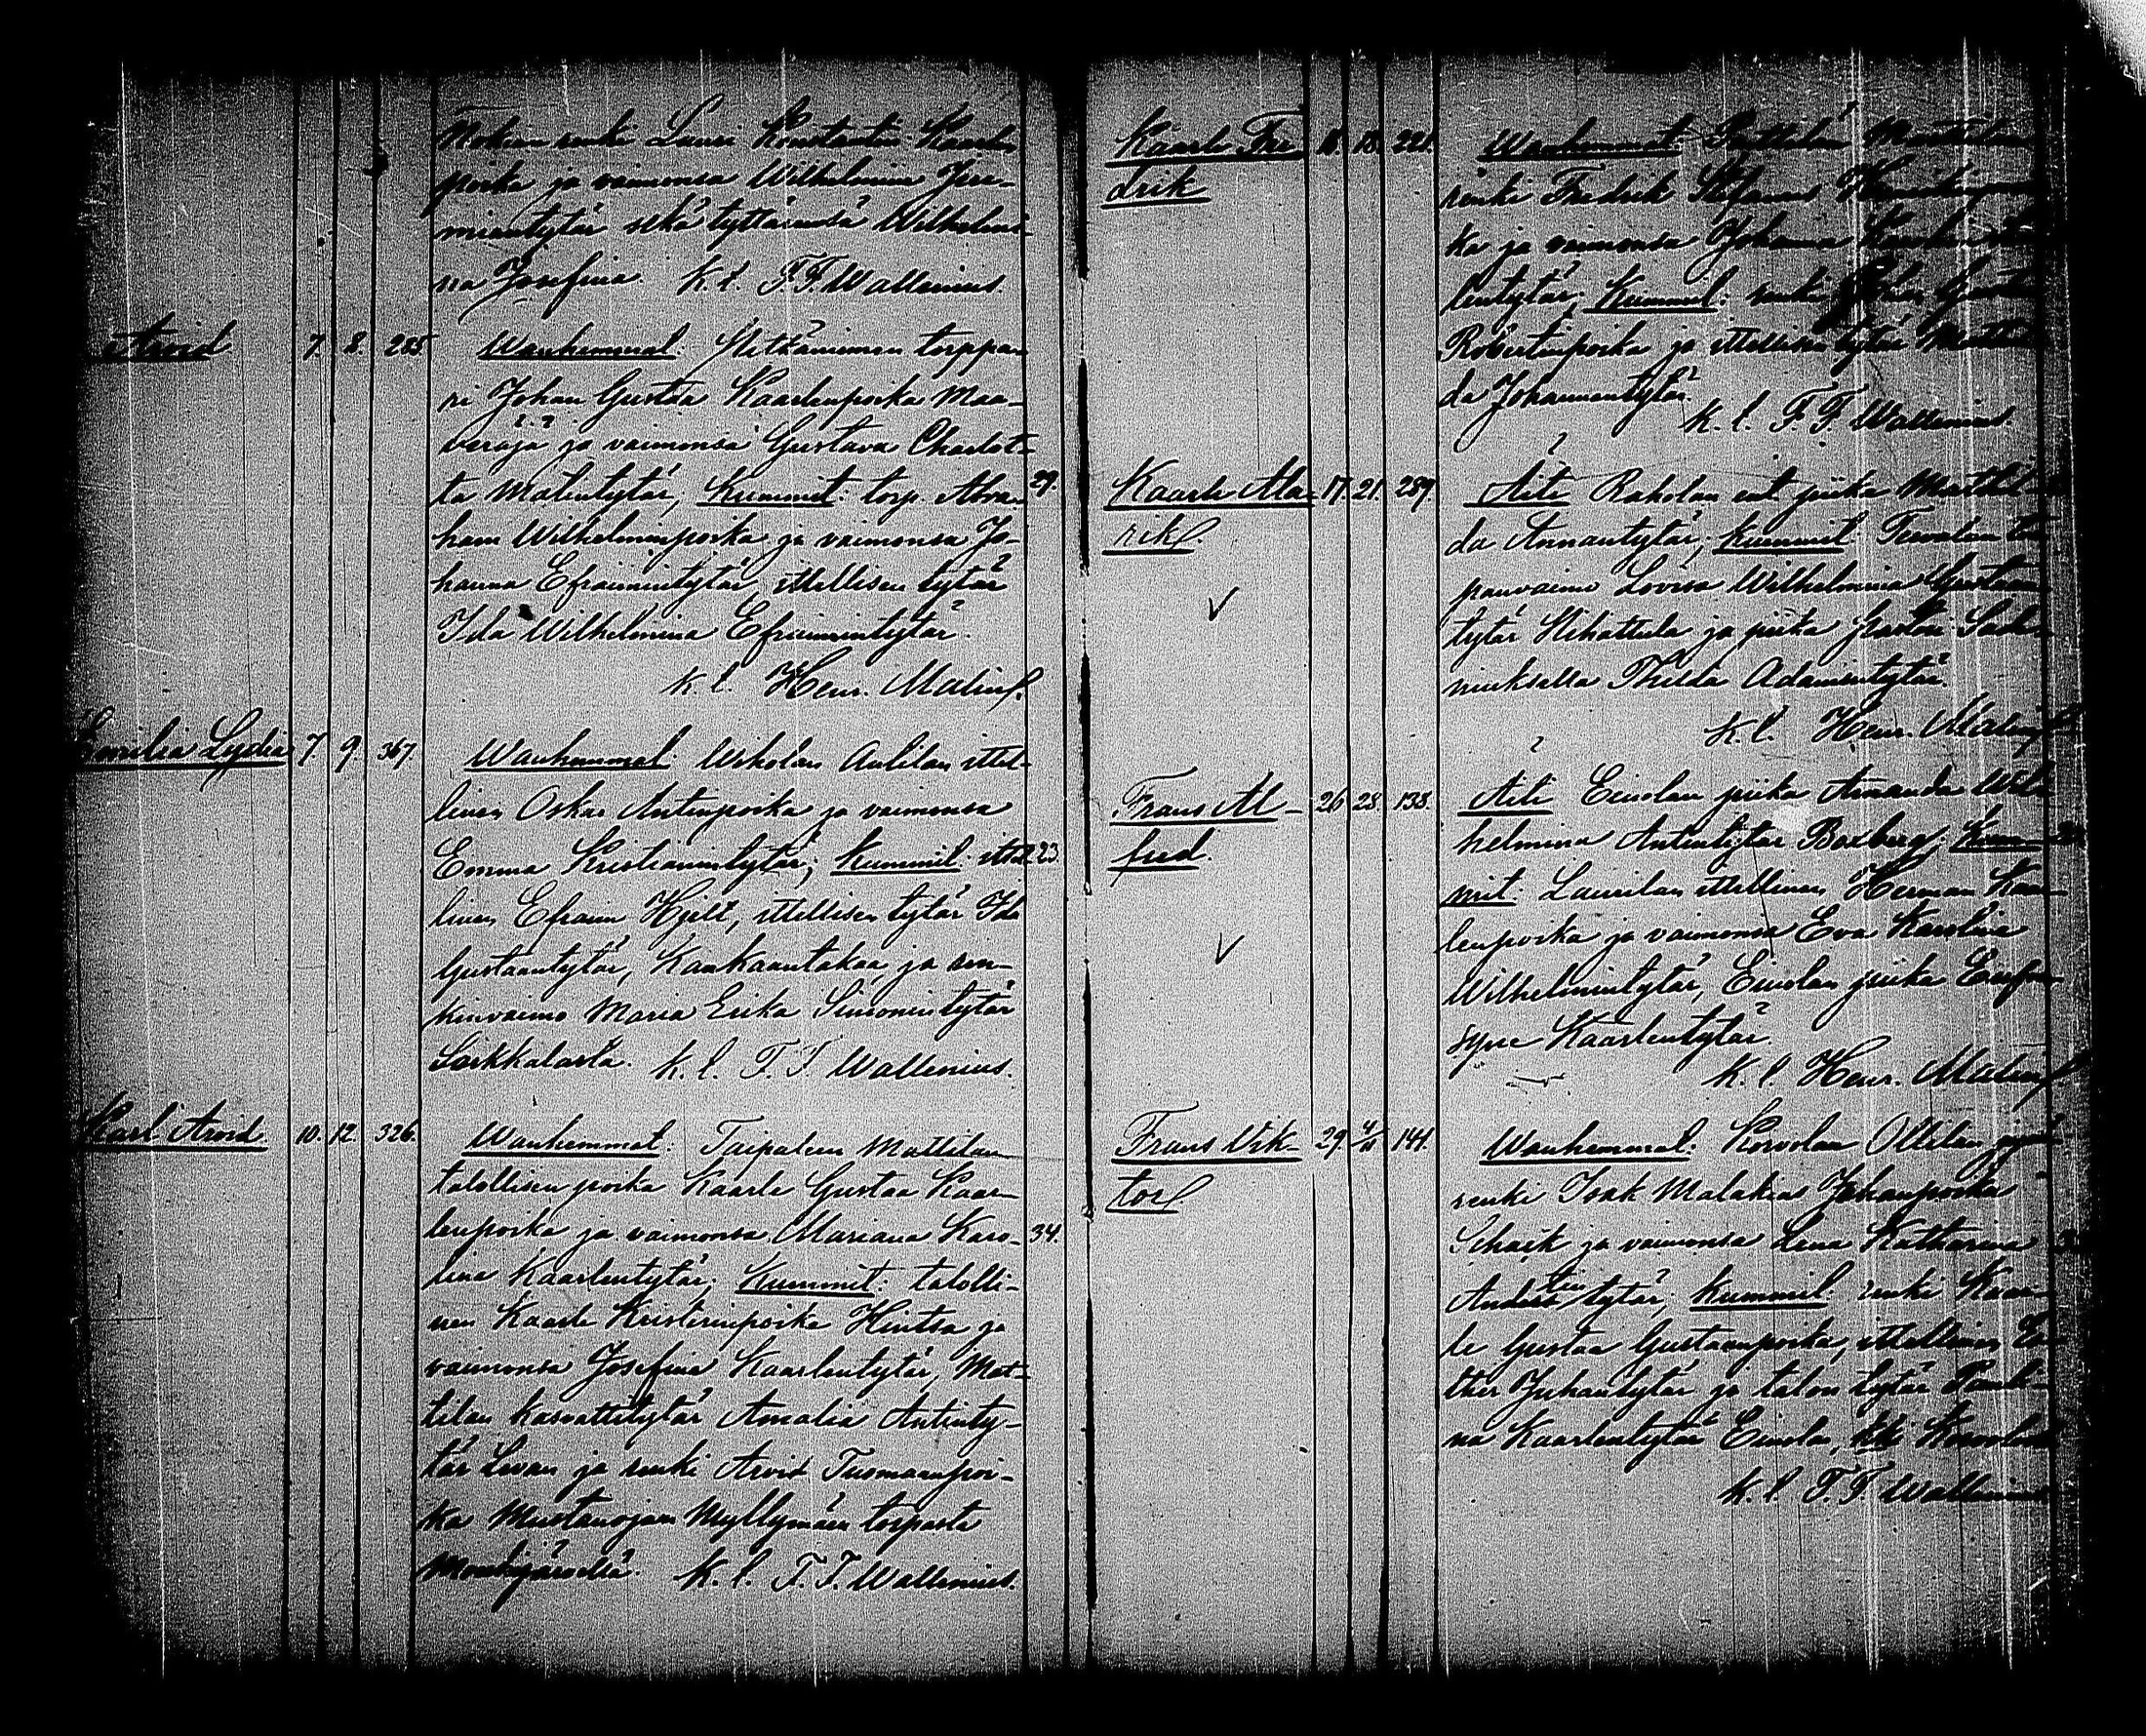 Nokian renki Lauri Konstantin Kaarlen
poika ja vaimonsa Wilhelmina Jere-
miantytär sekä tyttärensä Wilhelmi-
na Josefina. k. l. F. F. Wallenius
Arvid 7. 8. 285. Wanhemmat: torppa-
ri Johan Gustaa Kaarlenpoika Maa-
ja vaimonsa Gustava Charlot-
ta Matintytär, Kummit: torp. Abra- 29.
ham Wilhelminpoika ja vaimonsa Jo-
hanna Efraimintytär, ittellisen tytär
Ida Wilhelmina Efraimintytär.
k. l. Henr. Malin
Emilia Lydia 7 9. 367. Wanhemmat: Aulilan ittel-
linen Oskar Antinpoika ja vaimonsa
Emma Kristianintytär; Kummit: ittel- 23.
linen Efraim Hjelt, ittellisen tytär Ida
Gustaantytär, Kankaantakaa, ja ren-
kinvaimo Maria Erika Simonintytär
Sarkkalasta. k. l. F. F. Wallenius.
Karl Arvid 10. 12. 326. Wanhemmat: Taipaleen Mattilan
talollisen poika Kaarle Gustaa Kaar-
lenpoika ja vaimonsa Mariana Karo- 34.
lina Kaarlentytär; Kummit: talolli-
nen Kaarle Kristerinpoika Hintsa ja
vaimonsa Josefina Kaarlentytär, Mat-
tilan kasvattitytär Amalia Antinty-
tär Levan ja renki Arvid Tuomaanpoi-
ka Mustanojan Myllymäen torpasta
k. l. F. F. Wallenius.
Kaarle Fre 18. 221. Wanhemmat:
drik renki Fredrik Stefanus
ka ja vaimonsa Johanna
lentytär; Kummit: renki
Robertinpoika ja ittellisen tytär
da Johannentytär.
k. l. F. F. Wallenius.
Kaarle Ala- 17. 21. 289. Äiti Raholan ent. piika Mathil-
rik da Annantytär; Kummit:
panvaimo Lovisa Wilhelmina
tytär Hihattula ja piika
Thilda Adamintytär.
k. l. Henr. Malin
Frans Al- 26 28. 138. Äiti Einolan piika Amanda Wil-
fred. helmina Antintytär Boxberg; Kum-
mit: Laurilan ittellinen Herman Kaar-
lenpoika ja vaimonsa Eva Karolina
Wilhelmintytär, Einolan piika Eufro-
syne Kaarlentytär
k. l. Henr. Malin
Frans Vik- 29. 141. Wanhemmat: Korvolan Ollilan
tor renki Isak Malakias Johanpoika
Schack ja vaimonsa Lena Katharina
Anderintytär; Kummit: renki Kaar-
le Gustaa Gustaanpoika, ittellinen Es-
ther Juhantytär ja talon tytär
na Kaarlentytär Einola,
k. l. F. F. Wallenius